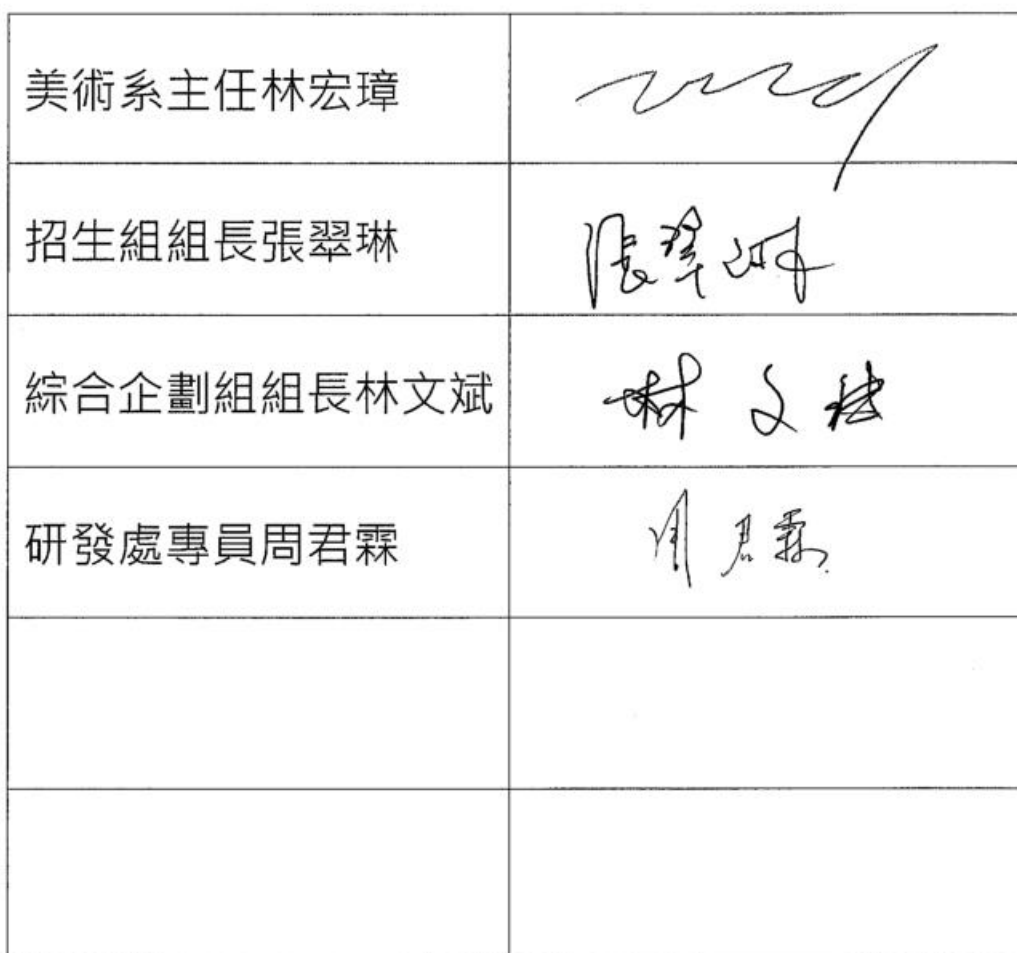 美術系主任林宏璋
招生組組長張翠琳
張翠琳
綜合企劃組組長林文斌
林文斌
研發處專員周君霖
周君霖